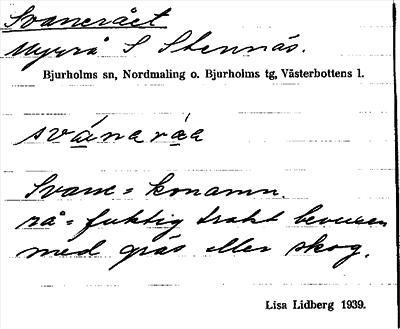 Svanerået
Myrrå S Stennäs.
Bjurholms sn, Nordmaling o. Bjurholms tg, Västerbottens l.
svánaráa
Svane = konamn.
rå = fuktig trakt bevuxen
med gräs eller skog.
Lisa Lidberg 1939.